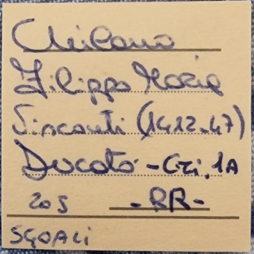 Milano
Filippo Maria
Visconti (1412-47)
Ducato - Cri. 1A
205 - RR -
SGOALI